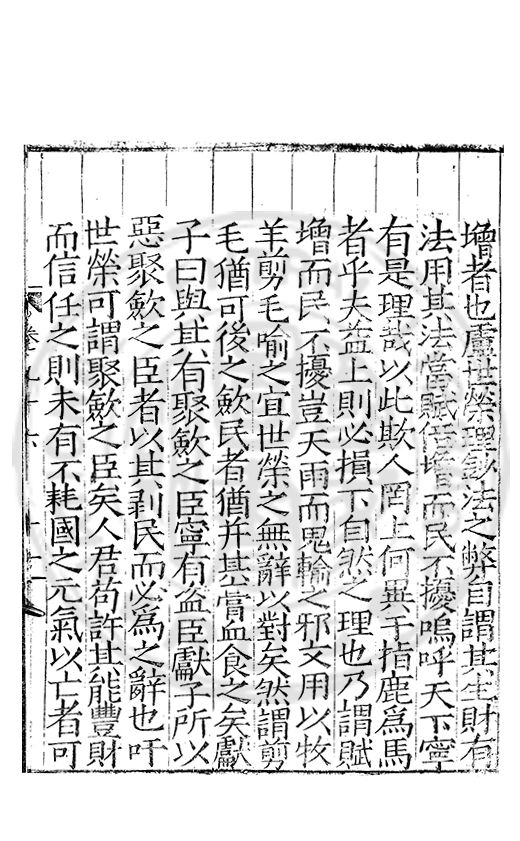 增者也盧世榮理鈔法之弊自謂其生財有
法用其法當賦倍增而民不擾嗚呼天下寧
有是理哉以此欺人罔上何異于指鹿爲馬
者乎夫益上則必損下自然之理也乃謂賦
增而民不擾豈天雨而鬼輸之邪文用以牧
羊剪毛喻之宜世榮之無辭以對矣然謂剪
毛猶可後之斂民者猶并其膏血食之矣獻
子曰與其有聚斂之臣寧有盜臣獻子所以
惡聚斂之臣者以其剥民而必爲之辭也吁
世榮可謂聚斂之臣矣人君苟許其能豐財
而信任之則未有不耗國之元氣以亡者可
卷九十六